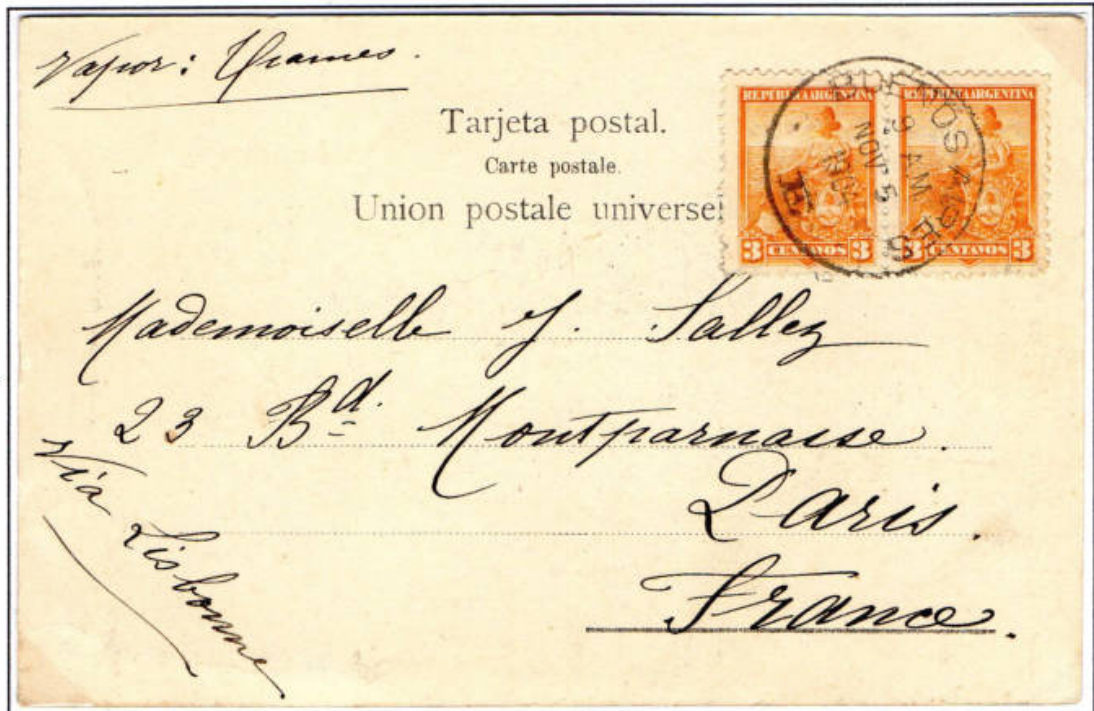 Vapor: Thames.
Tarjeta postal.
Carte postale.
Union postale universel
REPUBLICA ARGENTINA
3 CENTAVOS 3
REPUBLICA ARGENTINA
3 CENTAVOS 3
BUENOS AIRES
9 AM
NOV 5
Mademoiselle J. Sallez
23 Bd. Montparnasse.
Paris.
France.
Viâ Lisbonne